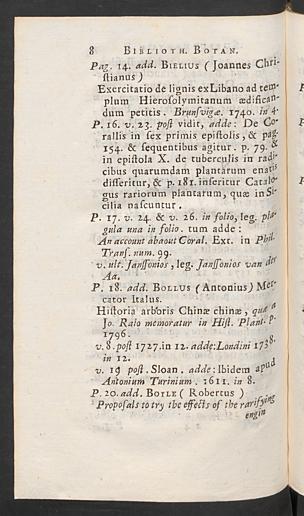 8 BIBLIOTH. BOTAN.
Pag. 14. add. BIELIUS (Joannes Chri-
stianus)
Exercitatio de lignis ex Libano ad tem-
plum Hierosolymitanum ædifican-
dum petitis. Brunsvigæ. 1740. in 4.
P. 16. v. 23. post vidit, adde: De Co-
rallis in sex primis epistolis, & pag.
154. & sequentibus agitur. p. 79. &
in epistola X. de tuberculis in radi-
cibus quarumdam plantarum enatis
disseritur, & p. 181. inseritur Catalo-
gus rariorum plantarum, quæ in Si-
cilia nascuntur.
P. 17. v. 24. & v. 26. in folio, leg. pla-
gula una in folio. tum adde:
An account abaout Coral. Ext. in Phil.
Trans. num. 99.
v. ult. Janssonios, leg. Janssonios van der
Aa.
P. 18. add. BOLLUS (Antonius) Mer-
cator Italus.
Historia arboris Chinæ chinæ, quæ a
Jo. Raio memoratur in Hist. Plant. p.
1796.
v. 8. post 1727. in 12. adde: Londini 1738.
in 12.
v. 19 post. Sloan. adde: Ibidem apud
Antonium Turinium. 1611. in 8.
P. 20. add. BOYLE (Robertus)
Proposals to try the effects of the rarifying
engin